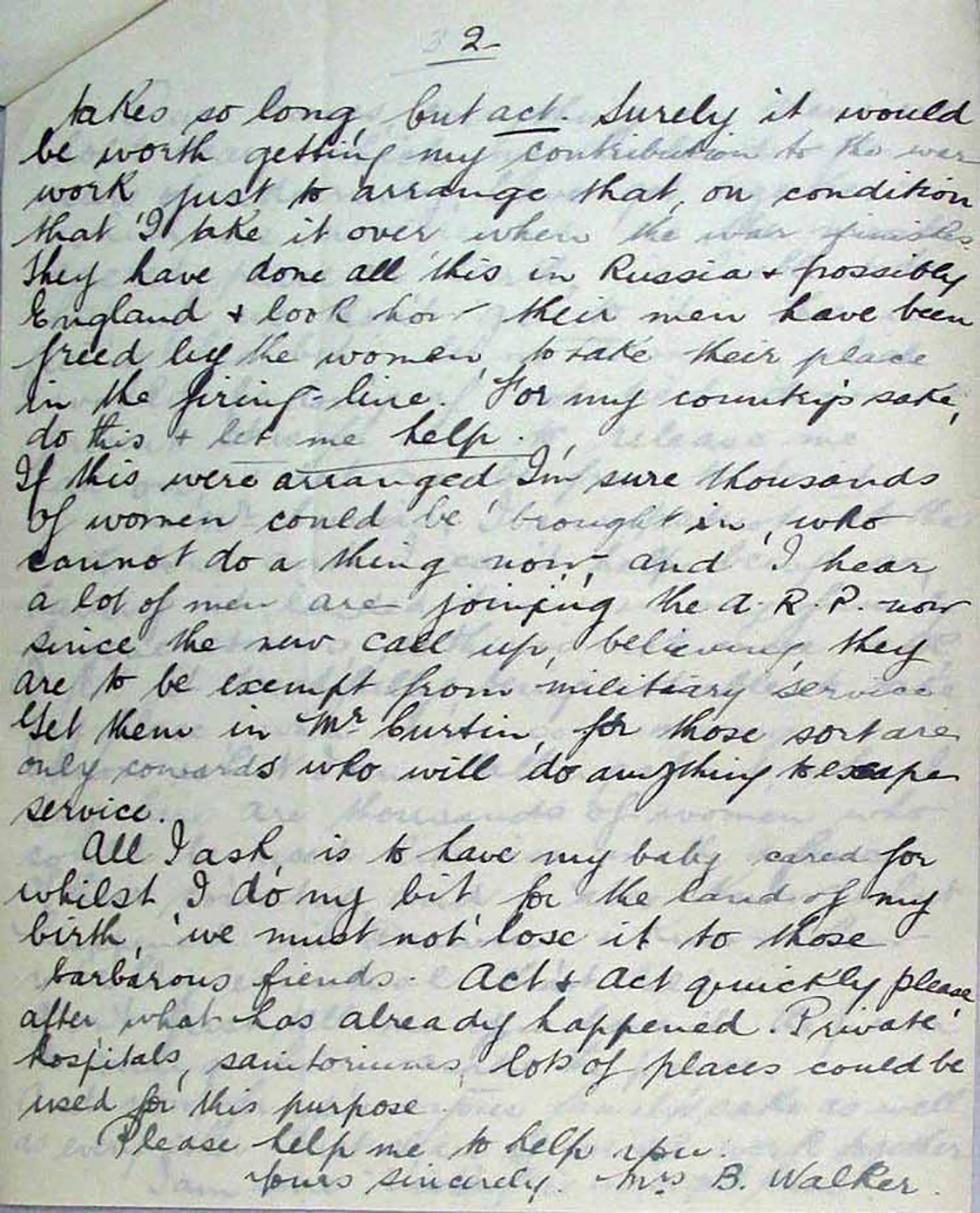 2-
takes so long, but act. Surely it would
be worth getting my contribution to the war
work just to arrange that, on condition
that I take it over when the war finishes.
They have done all this in Russia & possibly
England & look how their men have been
freed by the women, to take their place
in the firing-line. For my country's sake,
do this & let me help.
If this were arranged I'm sure thousands
of women could be brought in, who
cannot do a thing now, and I hear
a lot of men are joining the A.R.P. now
since the new call up, believing they
are to be exempt from military service
Get them in Mr Curtin, for those sort are
only cowards who will do anything to escape
service.
All I ask is to have my baby cared for
whilst I do my bit for the land of my
birth, we must not lose it to those
barbarous fiends. Act & act quickly please,
after what has already happened. Private
hospitals, sanitoriums, lots of places could be
used for this purpose.
Please help me to help you.
Yours sincerely. Mrs B. Walker.